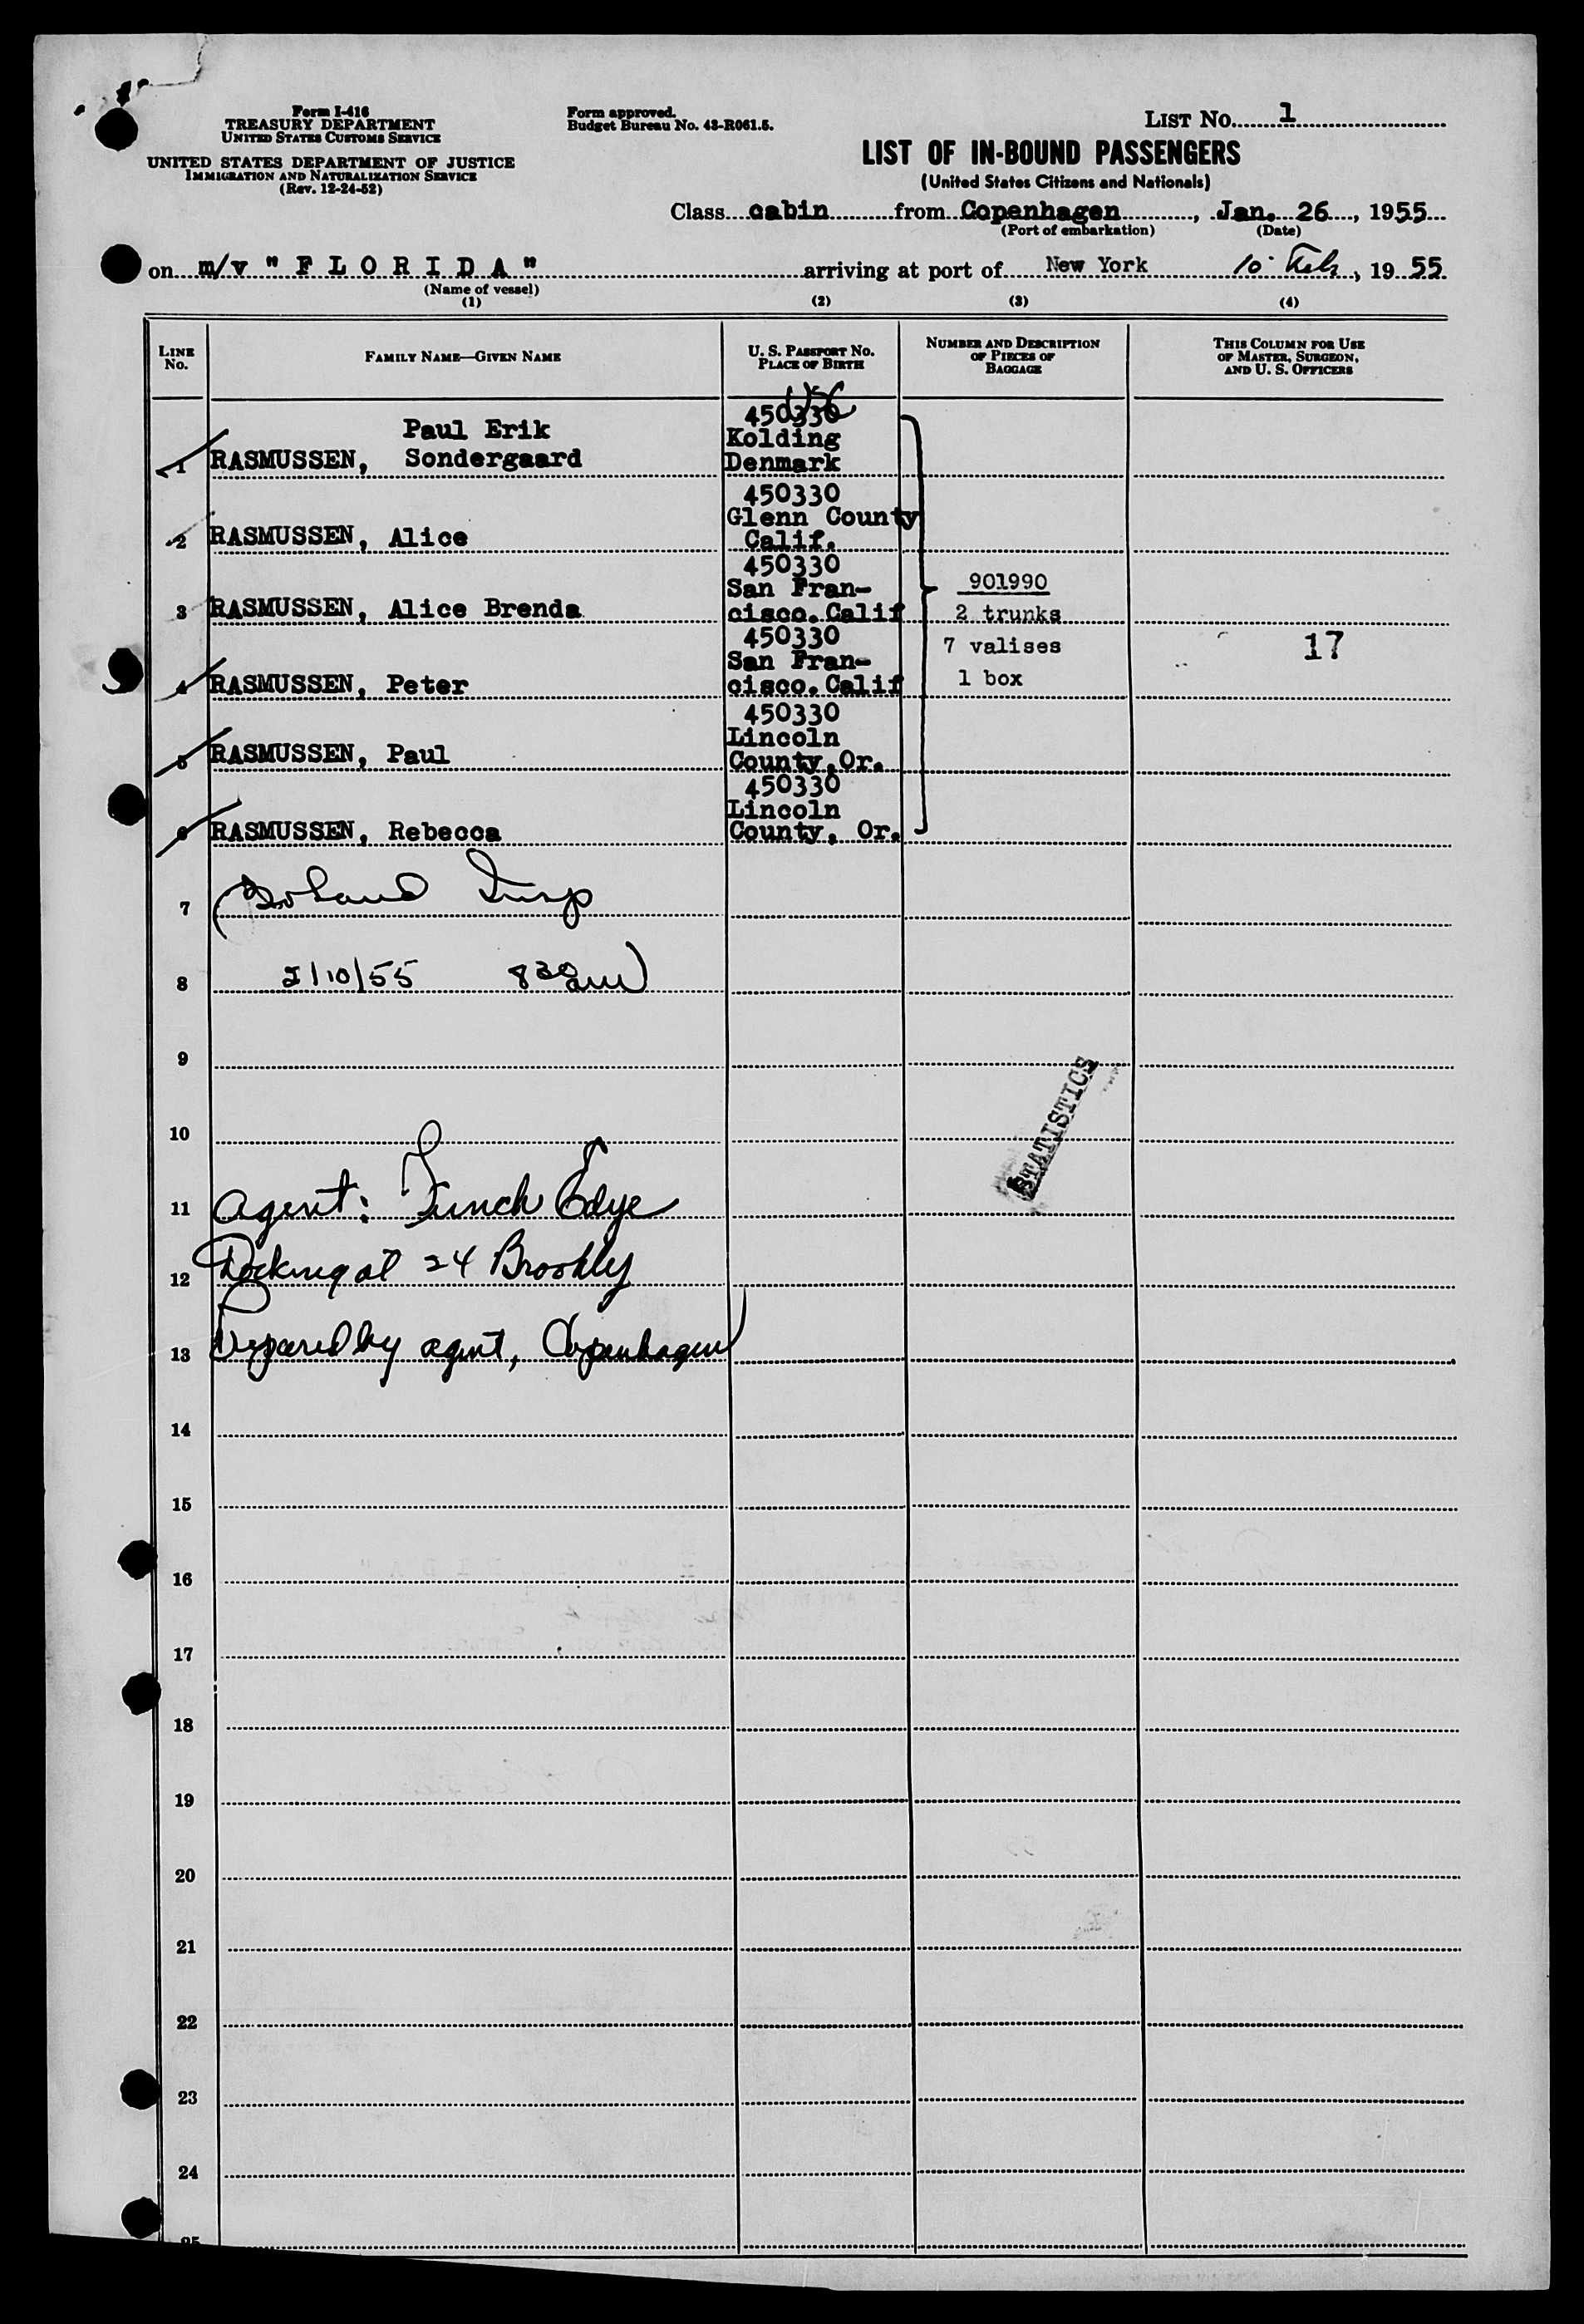 Form I-416
TREASURY DEPARTMENT
UNITED STATES CUSTOMS SERVICE
UNITED STATES DEPARTMENT OF JUSTICE
IMMIGRATION AND NATURALIZATION SERVICE
(Rev. 12-24-52)
Form approved.
Budget Bureau No. 43-R061.5.
LIST No. 1
LIST OF IN-BOUND PASSENGERS
(United States Citizens and Nationals)
Class cabin from Copenhagen, Jan. 26, 1955
(Port of embarkation) (Date)
on m/v "FLORIDA" arriving at port of New York 10 Feb, 1955
(Name of vessel)
(1) (2) (3) (4)
LINE No.
FAMILY NAME—GIVEN NAME
U. S. PASSPORT No. PLACE OF BIRTH
NUMBER AND DESCRIPTION OF PIECES OF BAGGAGE
THIS COLUMN FOR USE OF MASTER, SURGEON, AND U. S. OFFICERS
450330
Paul Erik Kolding
1 RASMUSSEN, Sondergaard Denmark
450330
Glenn County
2 RASMUSSEN, Alice Calif.
450330
San Fran- 901990
3 RASMUSSEN, Alice Brenda cisco. Calif 2 trunks
450330 7 valises 17
San Fran-
4 RASMUSSEN, Peter cisco. Calif 1 box
450330
Lincoln
5 RASMUSSEN, Paul County, Or.
450330
Lincoln
6 RASMUSSEN, Rebecca County, Or.
7 Insp
8 2/10/55 8 30 am
9
STATISTICS
10
11 Agent: Funch Edye
12 Docking at 24 Brooklyn
13 Prepared by agent, Copenhagen
14
15
16
17
18
19
20
21
22
23
24
25